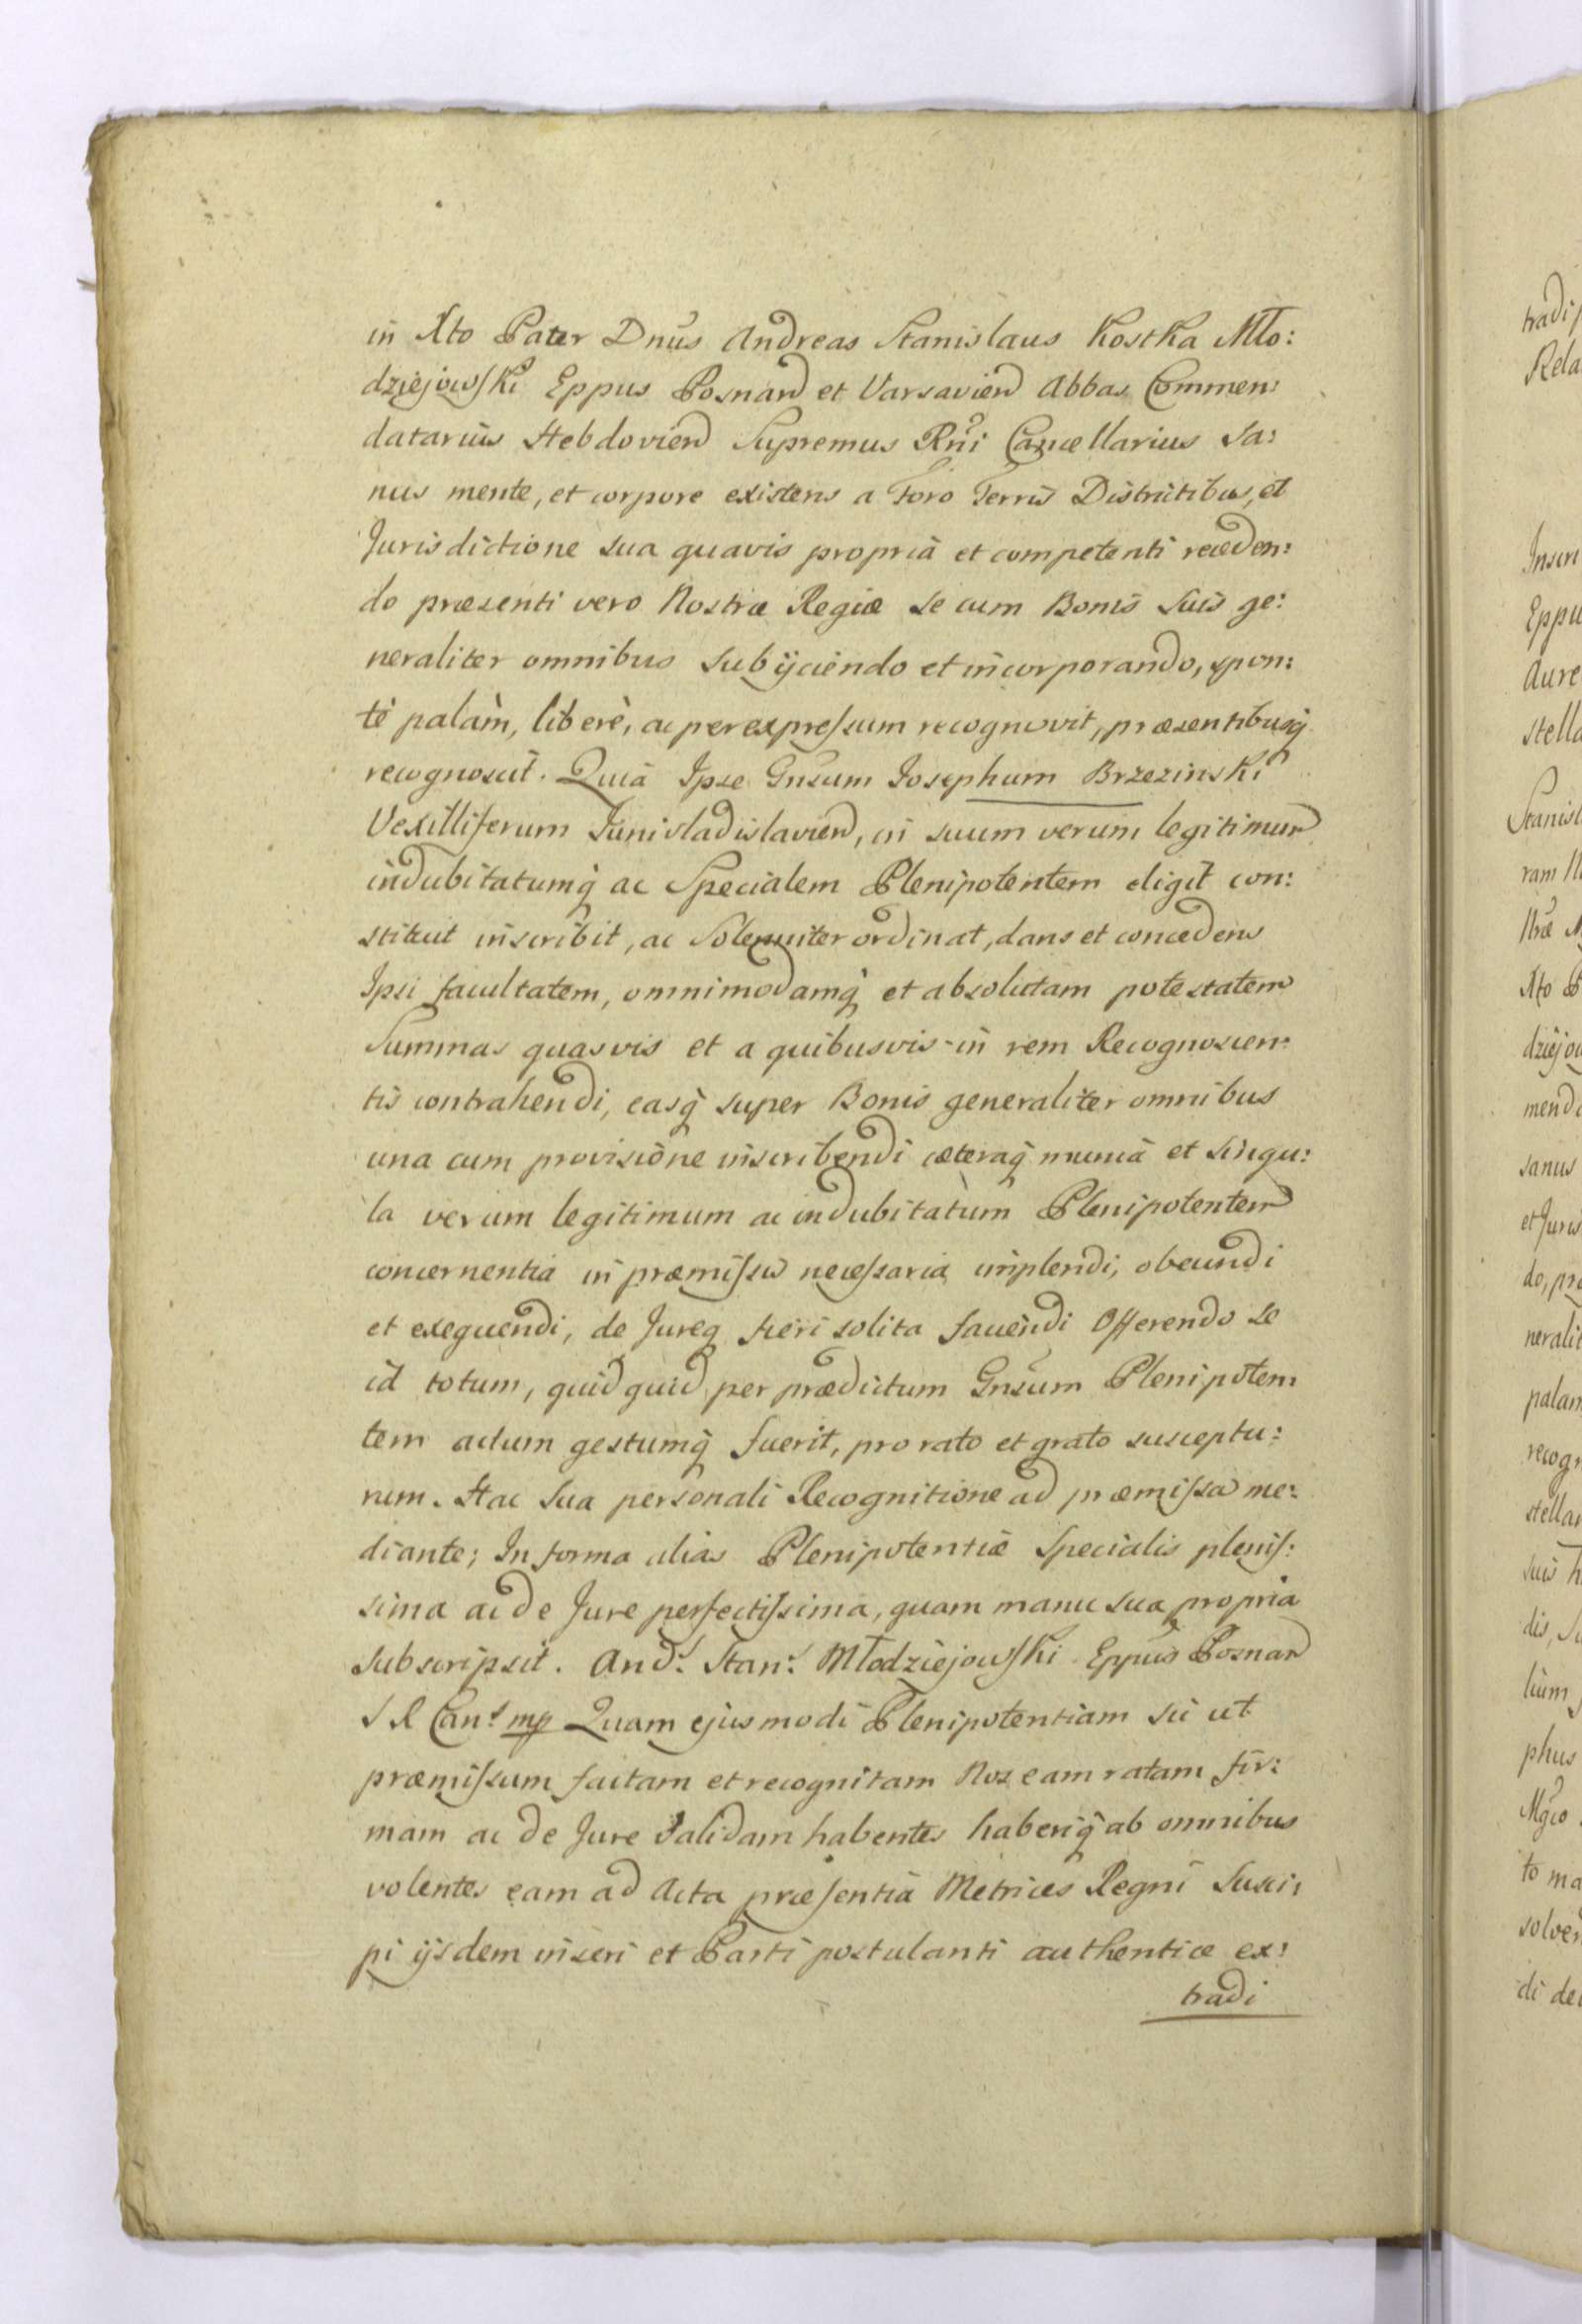 in Xto Pater Dnus Andreas Stanislaus Kostka Mło:
dziejowski Eppus Posnan et Varsavien Abbas Commen:
datarius Hebdovien Supremus Rni Cancellarius Sa:
nus mente, et corpore existens a Foro Terris Districtibus, et
Jurisdictione sua quavis propriâ et competenti receden:
do præsenti vero Nostræ Regiæ se cum Bonis suis ge:
neraliter omnibus subijciendo et incorporando, spon:
tè palàm, liberè, ac per expressum recognovit, præsentibusq̃
recognoscit. Quiâ Ipse Gnsum Josephum Brzezinski
Vexilliferum Junivladislavien, in suum verum legitimum
indubitatumq̃ ac Specialem Plenipotentem eligit con:
stituit inscribit, ac Solenniter ordinat, dans et concedens
Ipsi facultatem, omnimodamq̃ et absolutam potestatem
Summas quasvis et a quibusvis in rem Recognoscen:
tis contrahendi, easq̃ super Bonis generaliter omnibus
una cum provisione inscribendi cæteraq̃ muniâ et singu:
la verum legitimum ac indubitatum Plenipotentem
concernentia in præmissis necessaria implendi, obeundi
et exequendi, de Jureq fieri solita faciendi Offerendo se
id totum, quidquid per prædictum Gnsum Plenipoten:
tem actum gestumq̃ fuerit, pro rato et grato susceptu:
rum. Hac sua personali Recognitione ad præmissa me:
diante; In forma alias Plenipotentiæ Specialis plenis:
sima ac de Jure perfectissima, quam manu sua propria
subscripsit. And: Stan: Młodziejowski Eppus Posnan
S R Can: mp Quam ejusmodi Plenipotentiam sic ut
præmissum factam et recognitam Nos eam ratam fir:
mam ac de Jure validam habentes haberiq̃ ab omnibus
volentes eam ad Acta præsentiâ Metrices Regni Susci:
pi ijsdem inseri et Parti postulanti authentice ex:
tradi
tradi
Rela
Inscri
Eppu
Aure
stella
Stanisl
ram
Xto
dziejow
mend
sanus
et Juris
do, pr
neralit
palam
recogn
stella
suis
dis,
lium
phus
to ma
solven
di de